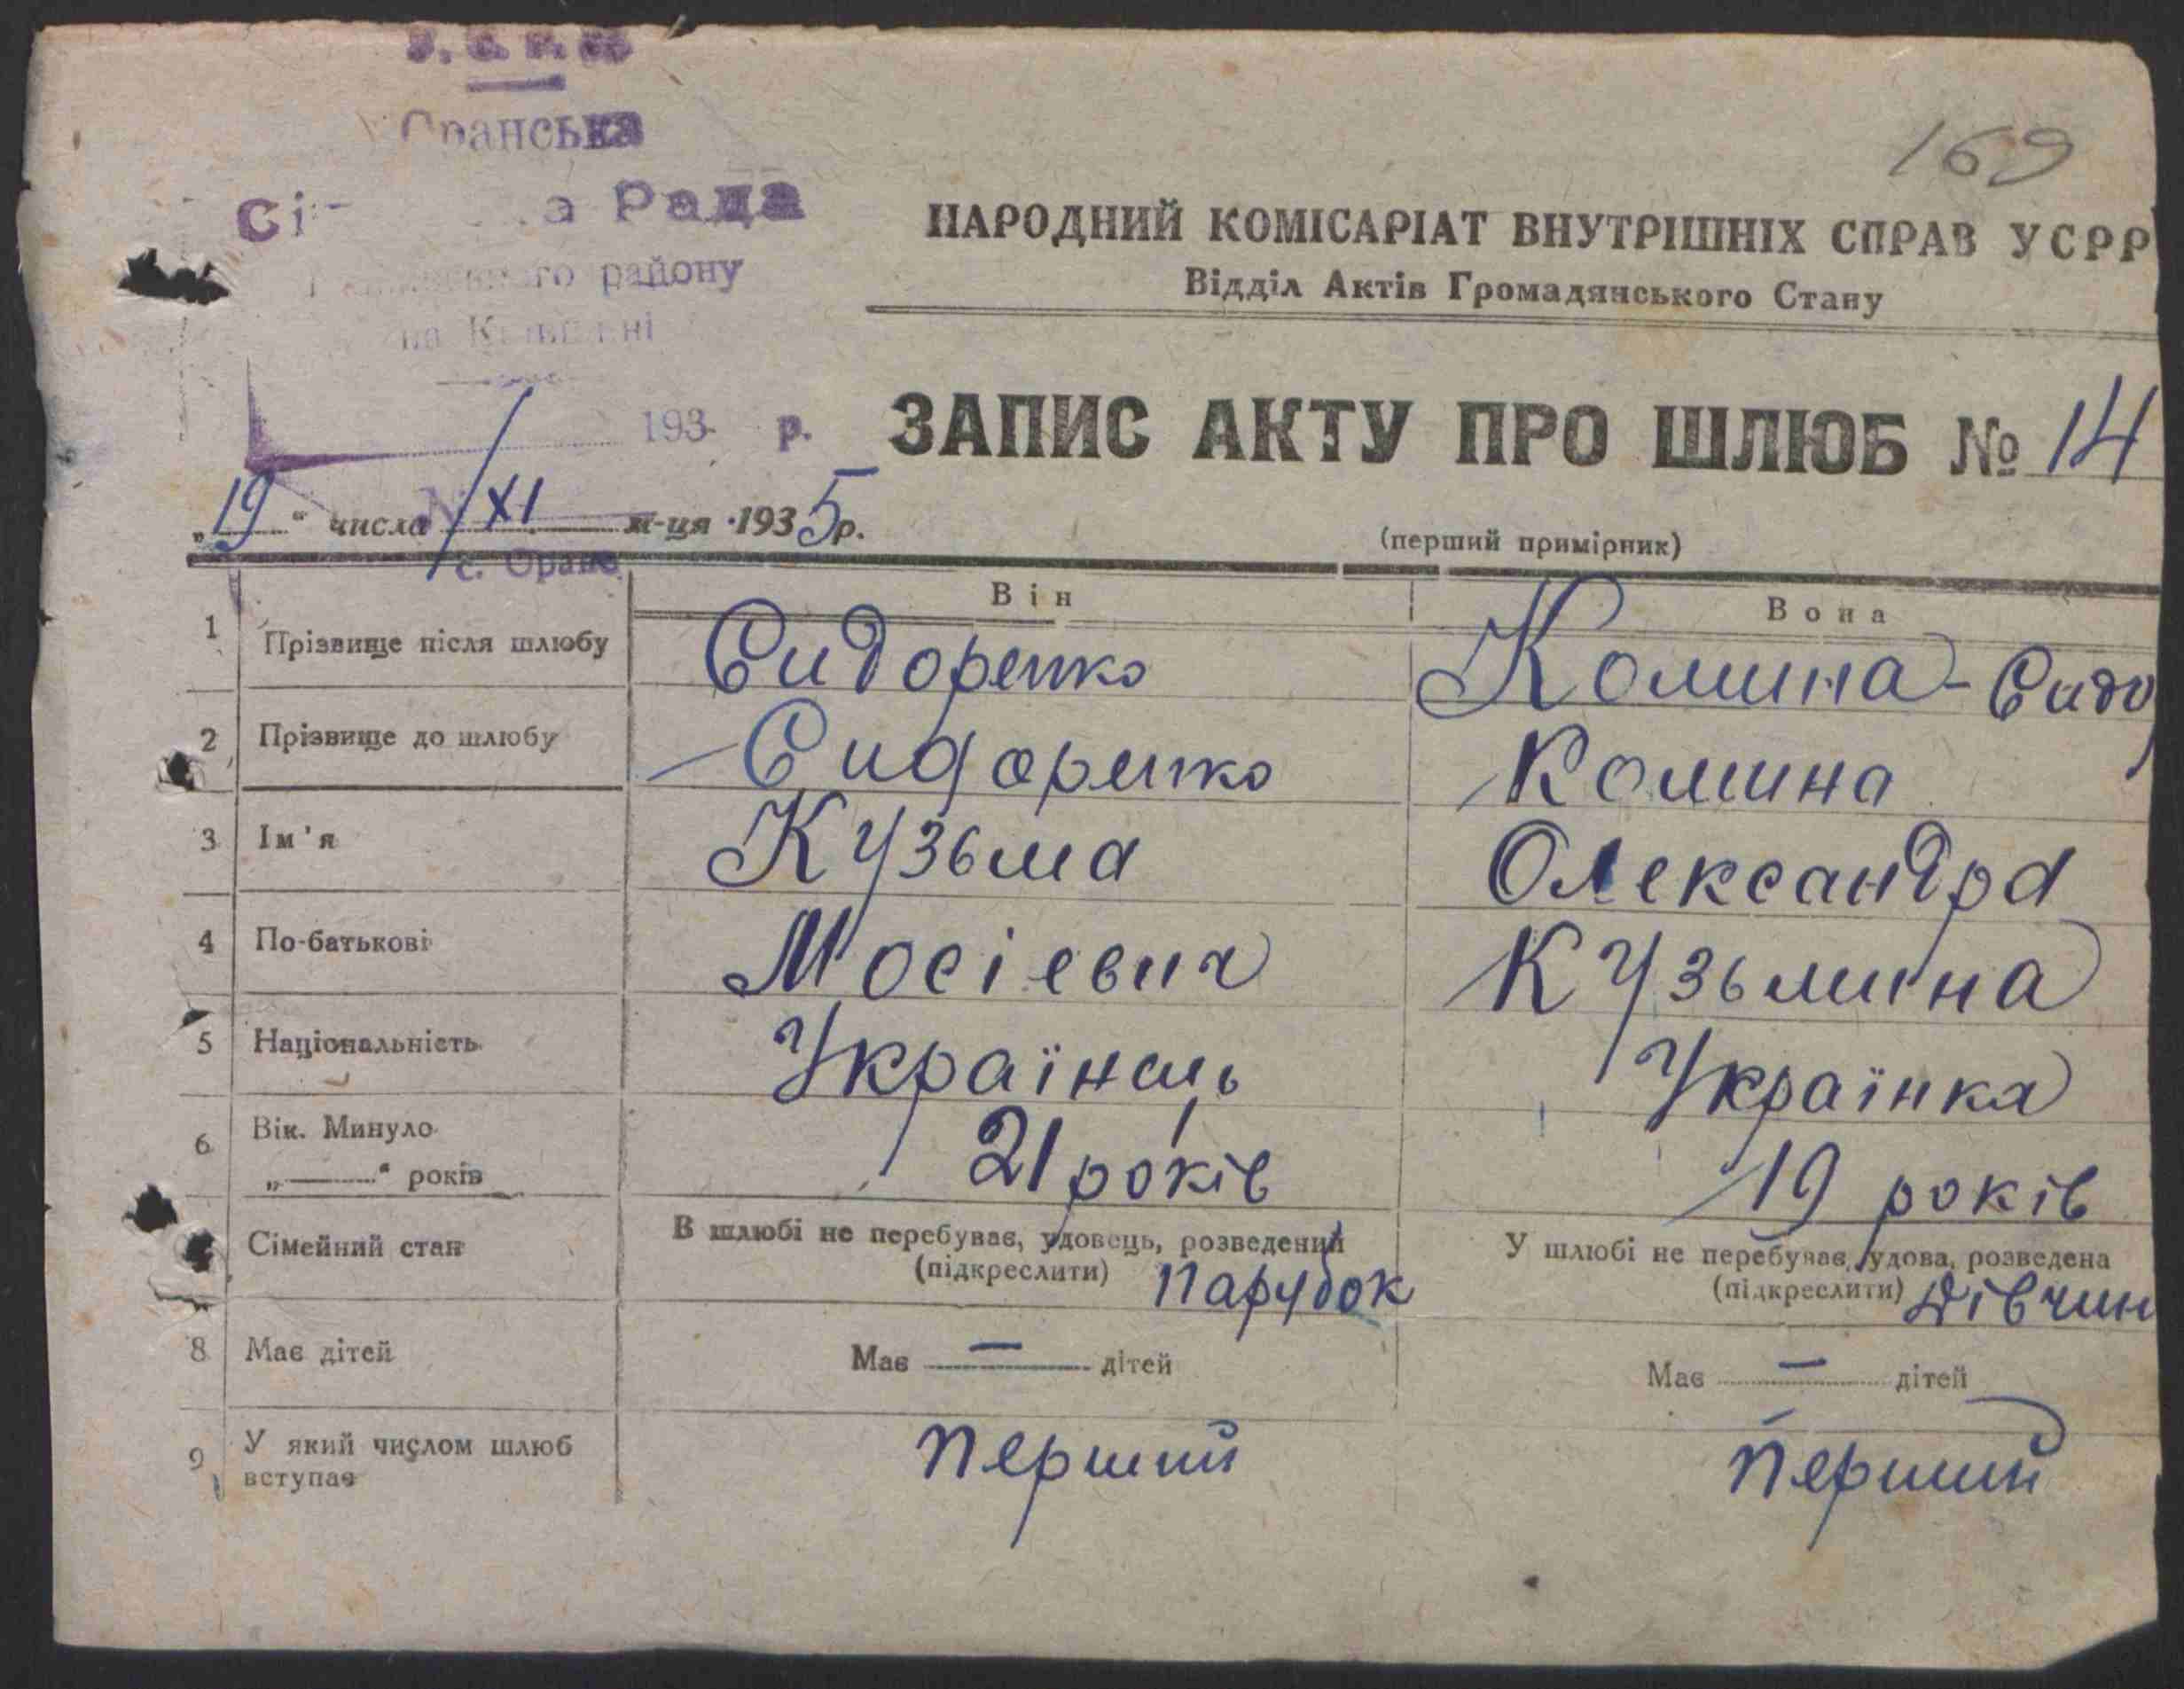 Оранська
Рада
району
169
НАРОДНИЙ КОМІСАРІАТ ВНУТРІШНІХ СПРАВ УСРР
Відділ Актів Громадянського Стану
193 р.
ЗАПИС АКТУ ПРО ШЛЮБ № 14
„19“ числа XI м-ця 1935 р.
(перший примірник)
с. Оране
Він Вона
1 Прізвище після шлюбу Сидоренко Комина-Сидо
2 Прізвище до шлюбу Сидоренко Комина
3 Ім'я Кузьма Олександра
4 По-батькові Мосієвич Кузьмина
5 Національність Українець Українка
6 Вік. Минуло
„——“ років 21 років 19 років
Сімейний стан В шлюбі не перебуває, удовець, розведений У шлюбі не перебуває, удова, розведена
(підкреслити) парубок (підкреслити) дівчин
8 Має дітей Має — дітей Має — дітей
9 У який числом шлюб вступає Перший Перший